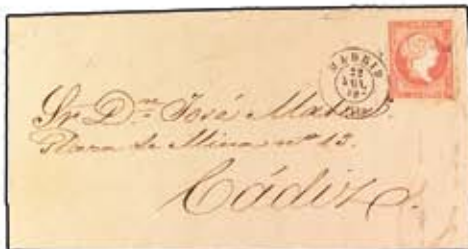 MADRID
22
Sr. Dn. José
Plaza de Mina nº 13.
Cádiz